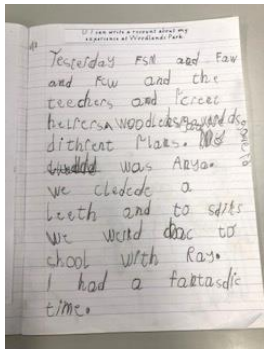 U I can write a recount about my
experience at Woodlands Park
Yesterday FSM and Faw
and Few and the
teechers and Perent
helpers
dithrent Plans. My
was Anya.
we cledede a
leeth and to sdiks
We weird bac to
chool with Ray.
I had a fantasdic
time.